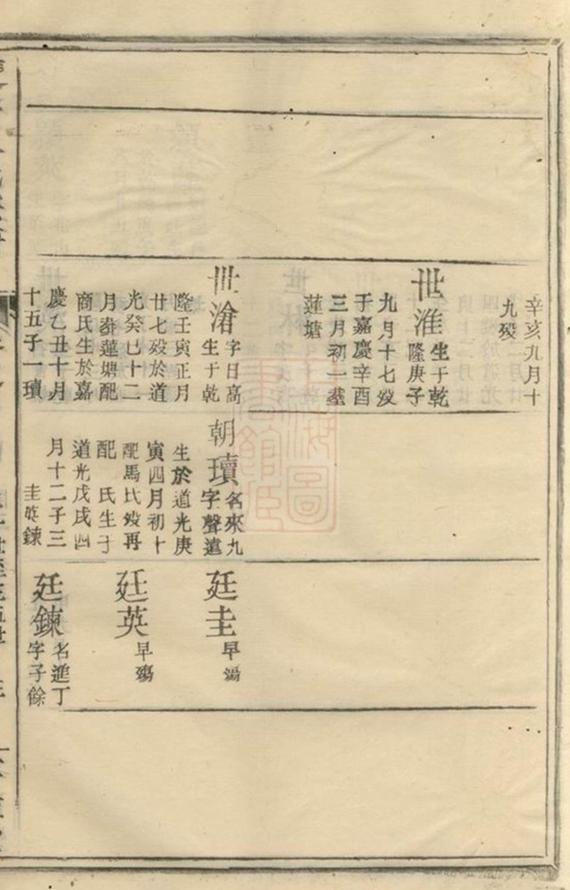 辛亥九月十
九歿
世淮生于乾
隆庚子
九月十七歿
于嘉慶辛酉
三月初一塟
蓮塘
世滄字日高
生于乾
隆壬寅正月
廿七歿於道
光癸巳十二
月塟蓮塘配
商氏生於嘉
慶乙丑十月
十五子一瓚
朝瓚名來九
字聲遠
生於道光庚
寅四月初十
配馬氏歿再
配 氏生于
道光戊戌四
月十二子三
圭英鍊
廷圭早殤
廷英早殤
廷鍊名進丁
字子餘